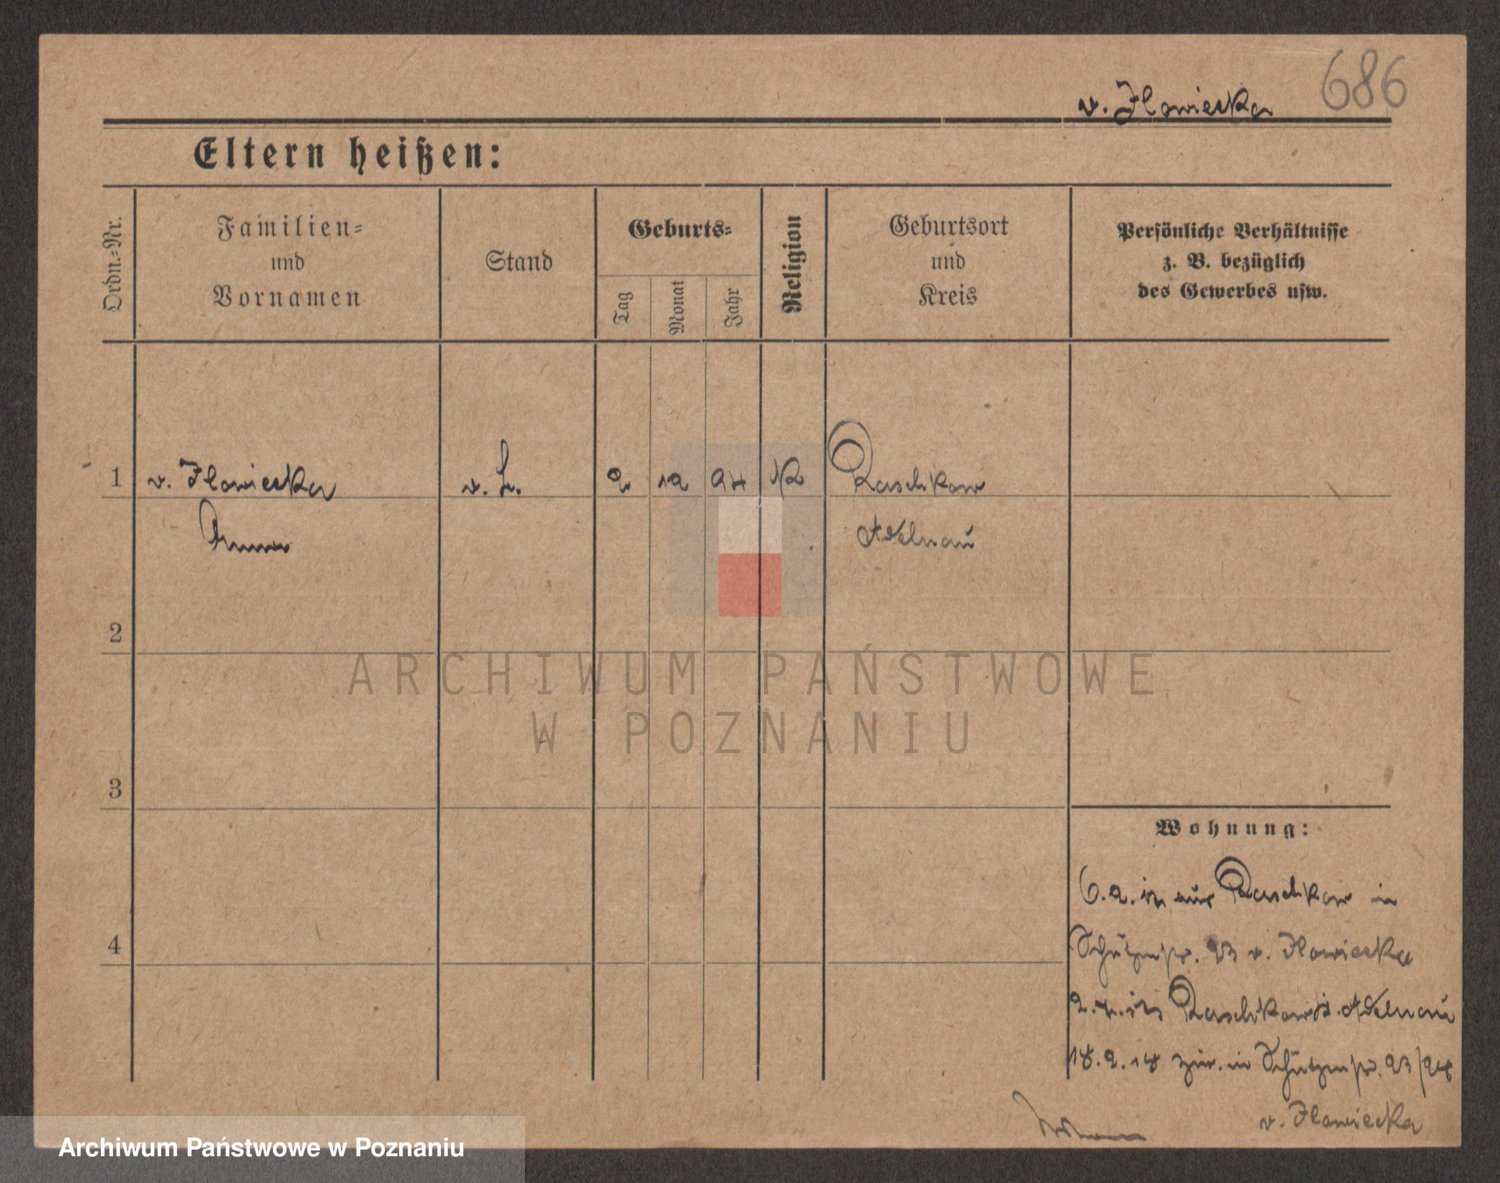 686
v. Ilowiecka
Eltern heißen:
Ordn.-Nr.
Familien-
und
Vornamen
Stand
Geburts-
Tag
Monat
Jahr
Religion
Geburtsort
und
Kreis
Persönliche Verhältnisse
z. B. bezüglich
des Gewerbes usw.
1
v. Ilowiecka
v. L.
2
12
94
K
Raschkow
Anna
Adelnau
2
ARCHIWUM PAŃSTWOWE
W POZNANIU
3
Wohnung:
4
6.2. aus Raschkow in
Schützenstr. 23 v. Ilowiecka
Raschkow Adelnau
18.2.18 zur. in Schützenstr. 23/24
v. Ilowiecka
Archiwum Państwowe w Poznaniu